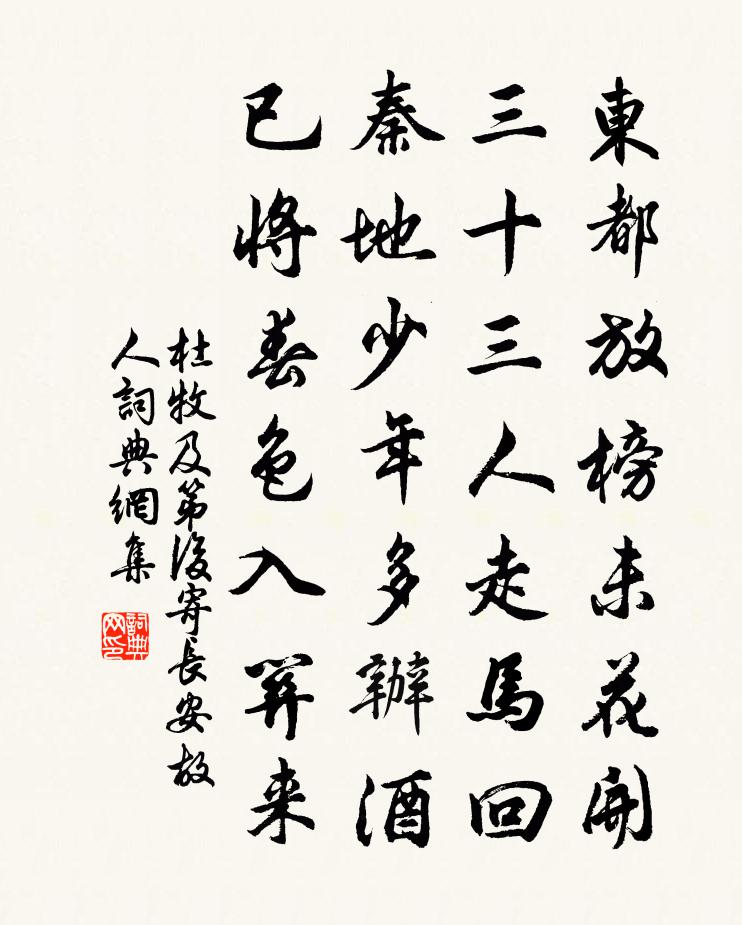 東都放榜未花開
三十三人走馬回
秦地少年多辦酒
已將春色入關来
杜牧及第後寄長安故
人詞典網集
詞典
网印